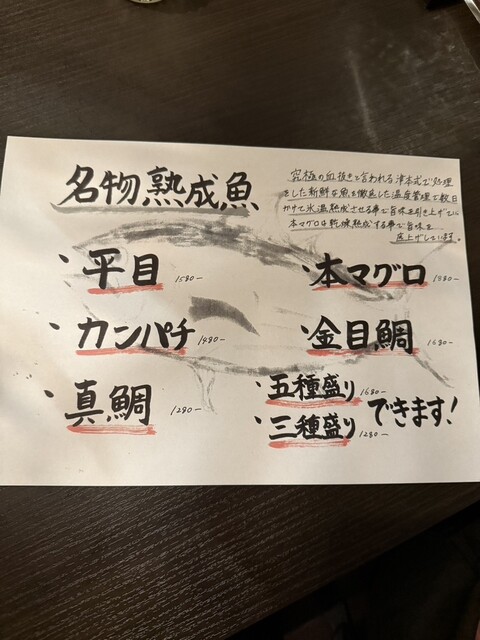 名物熟成魚
究極の血抜きと言われる津本式で処理
をした新鮮な魚を徹底した温度管理で数日
かけて氷温熟成させる事で旨味を引き上げて
本マグロは乾燥熟成する事で旨味を
底上げしています。
・平目 1580-
・カンパチ 1480-
・真鯛 1280-
・本マグロ 1580-
・金目鯛 1680-
・五種盛り 1680-
・三種盛り 1280-
できます!